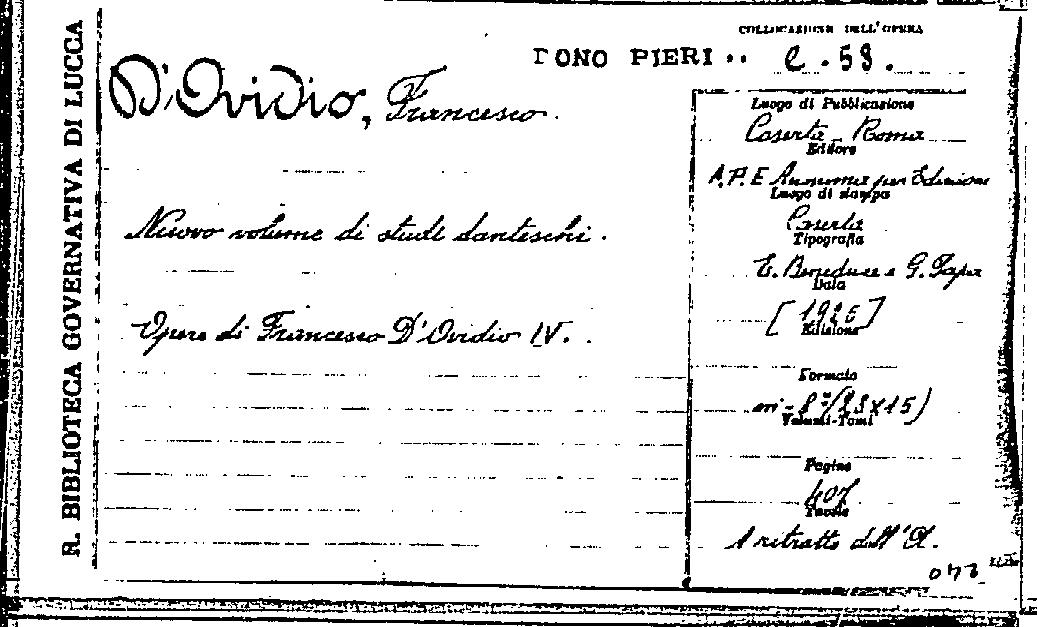 R. BIBLIOTECA GOVERNATIVA DI LUCCA
COLLOCAZIONE DELL'OPERA
DONO PIERI C. 58.
D'Ovidio, Francesco.
Nuovo volume di studi danteschi.
Opere di Francesco D'Ovidio IV.
Luogo di Pubblicazione
Caserta - Roma
Editore
A. P. E Anonima per Edizioni
Luogo di stampa
Caserta
Tipografia
E. Beneduce e G. Papa
Data
[1926]
Edizione
Formato
in-8° (23x15)
Volumi-Tomi
Pagine
407
Tavole
1 ritratto dell'A.